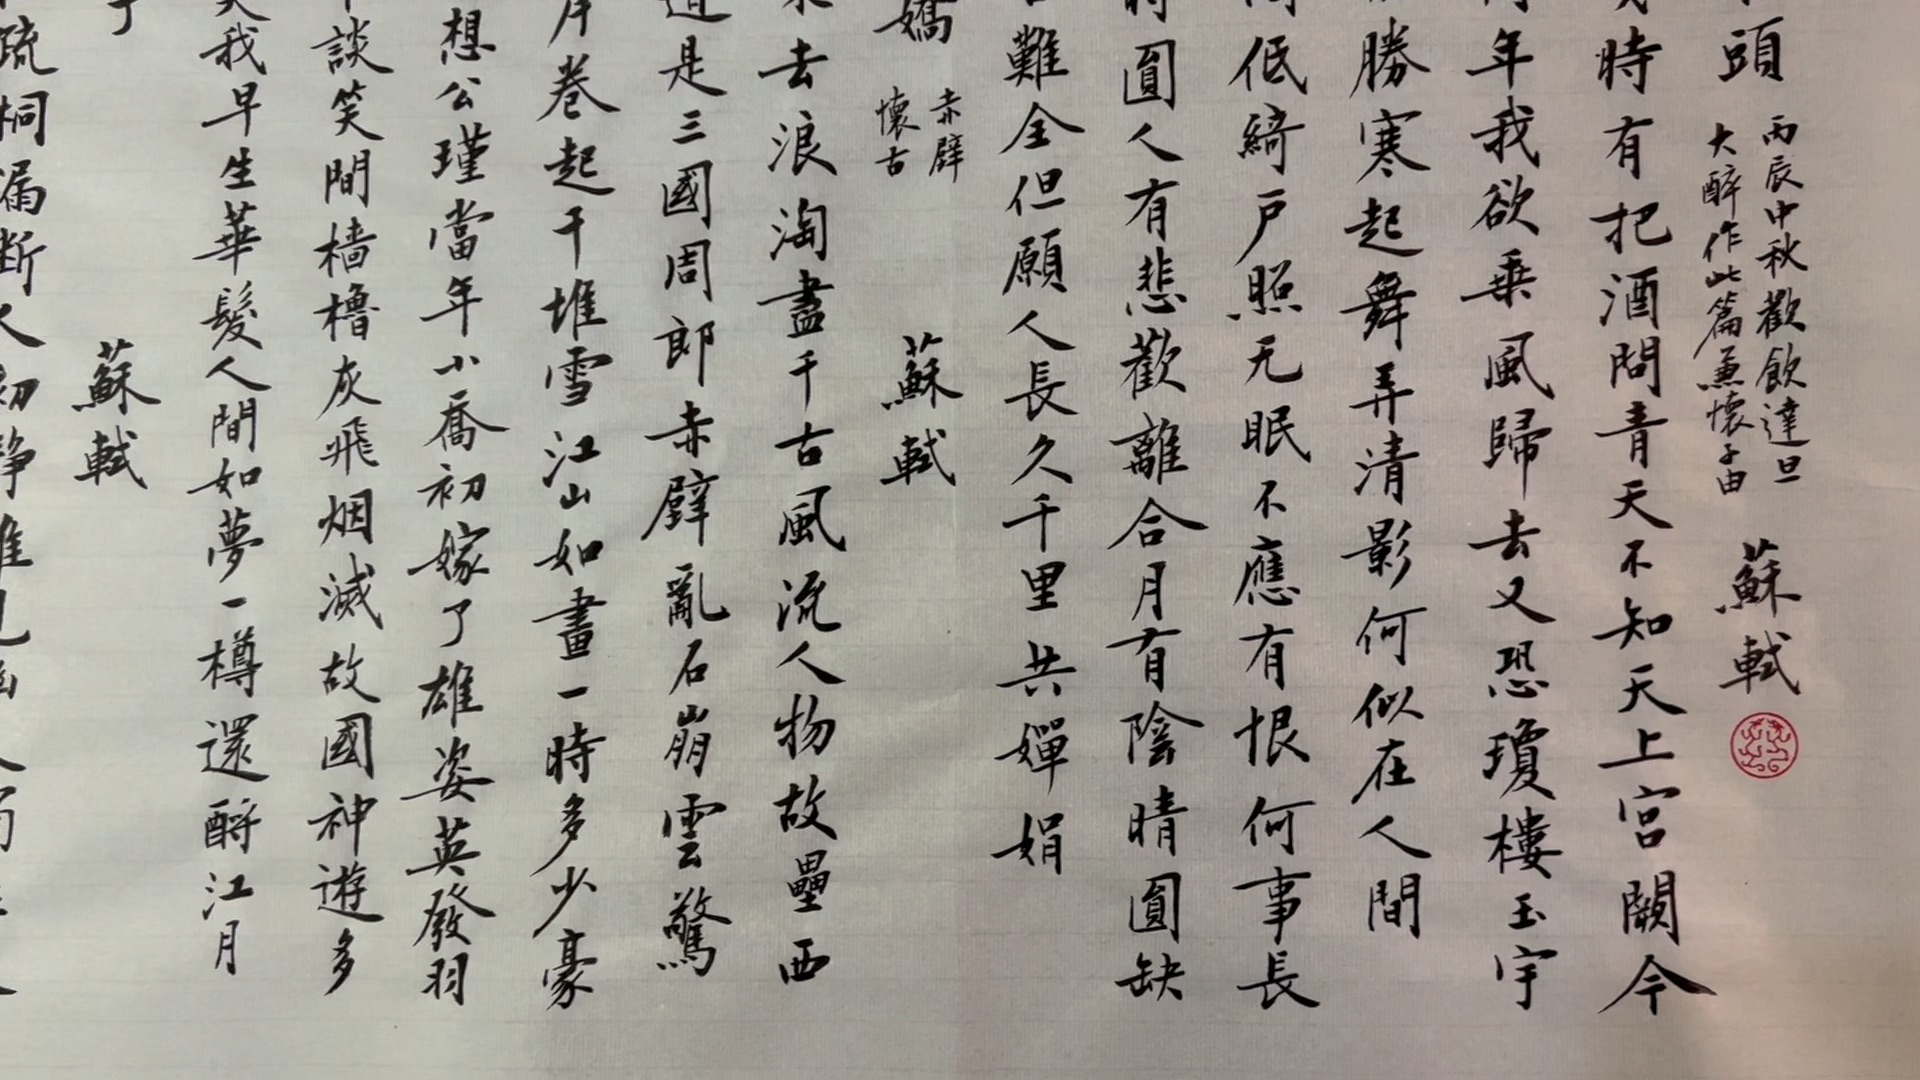 頭
丙辰中秋歡飲達旦
大醉作此篇兼懷子由
蘇軾
時有把酒問青天不知天上宮闕今
年我欲乗風歸去又恐瓊樓玉宇
勝寒起舞弄清影何似在人間
低綺户照无眠不應有恨何事長
圓人有悲歡離合月有陰晴圓缺
難全但願人長久千里共嬋娟
嬌
赤壁
懷古
蘇軾
去浪淘盡千古風流人物故壘西
道是三國周郎赤壁亂石崩雲驚
岸卷起千堆雪江山如畫一時多少豪
想公瑾當年小喬初嫁了雄姿英發羽
談笑間檣櫓灰飛烟滅故國神遊多
我早生華髮人間如夢一樽還酹江月
蘇軾
疏桐漏断人初静誰見幽人獨